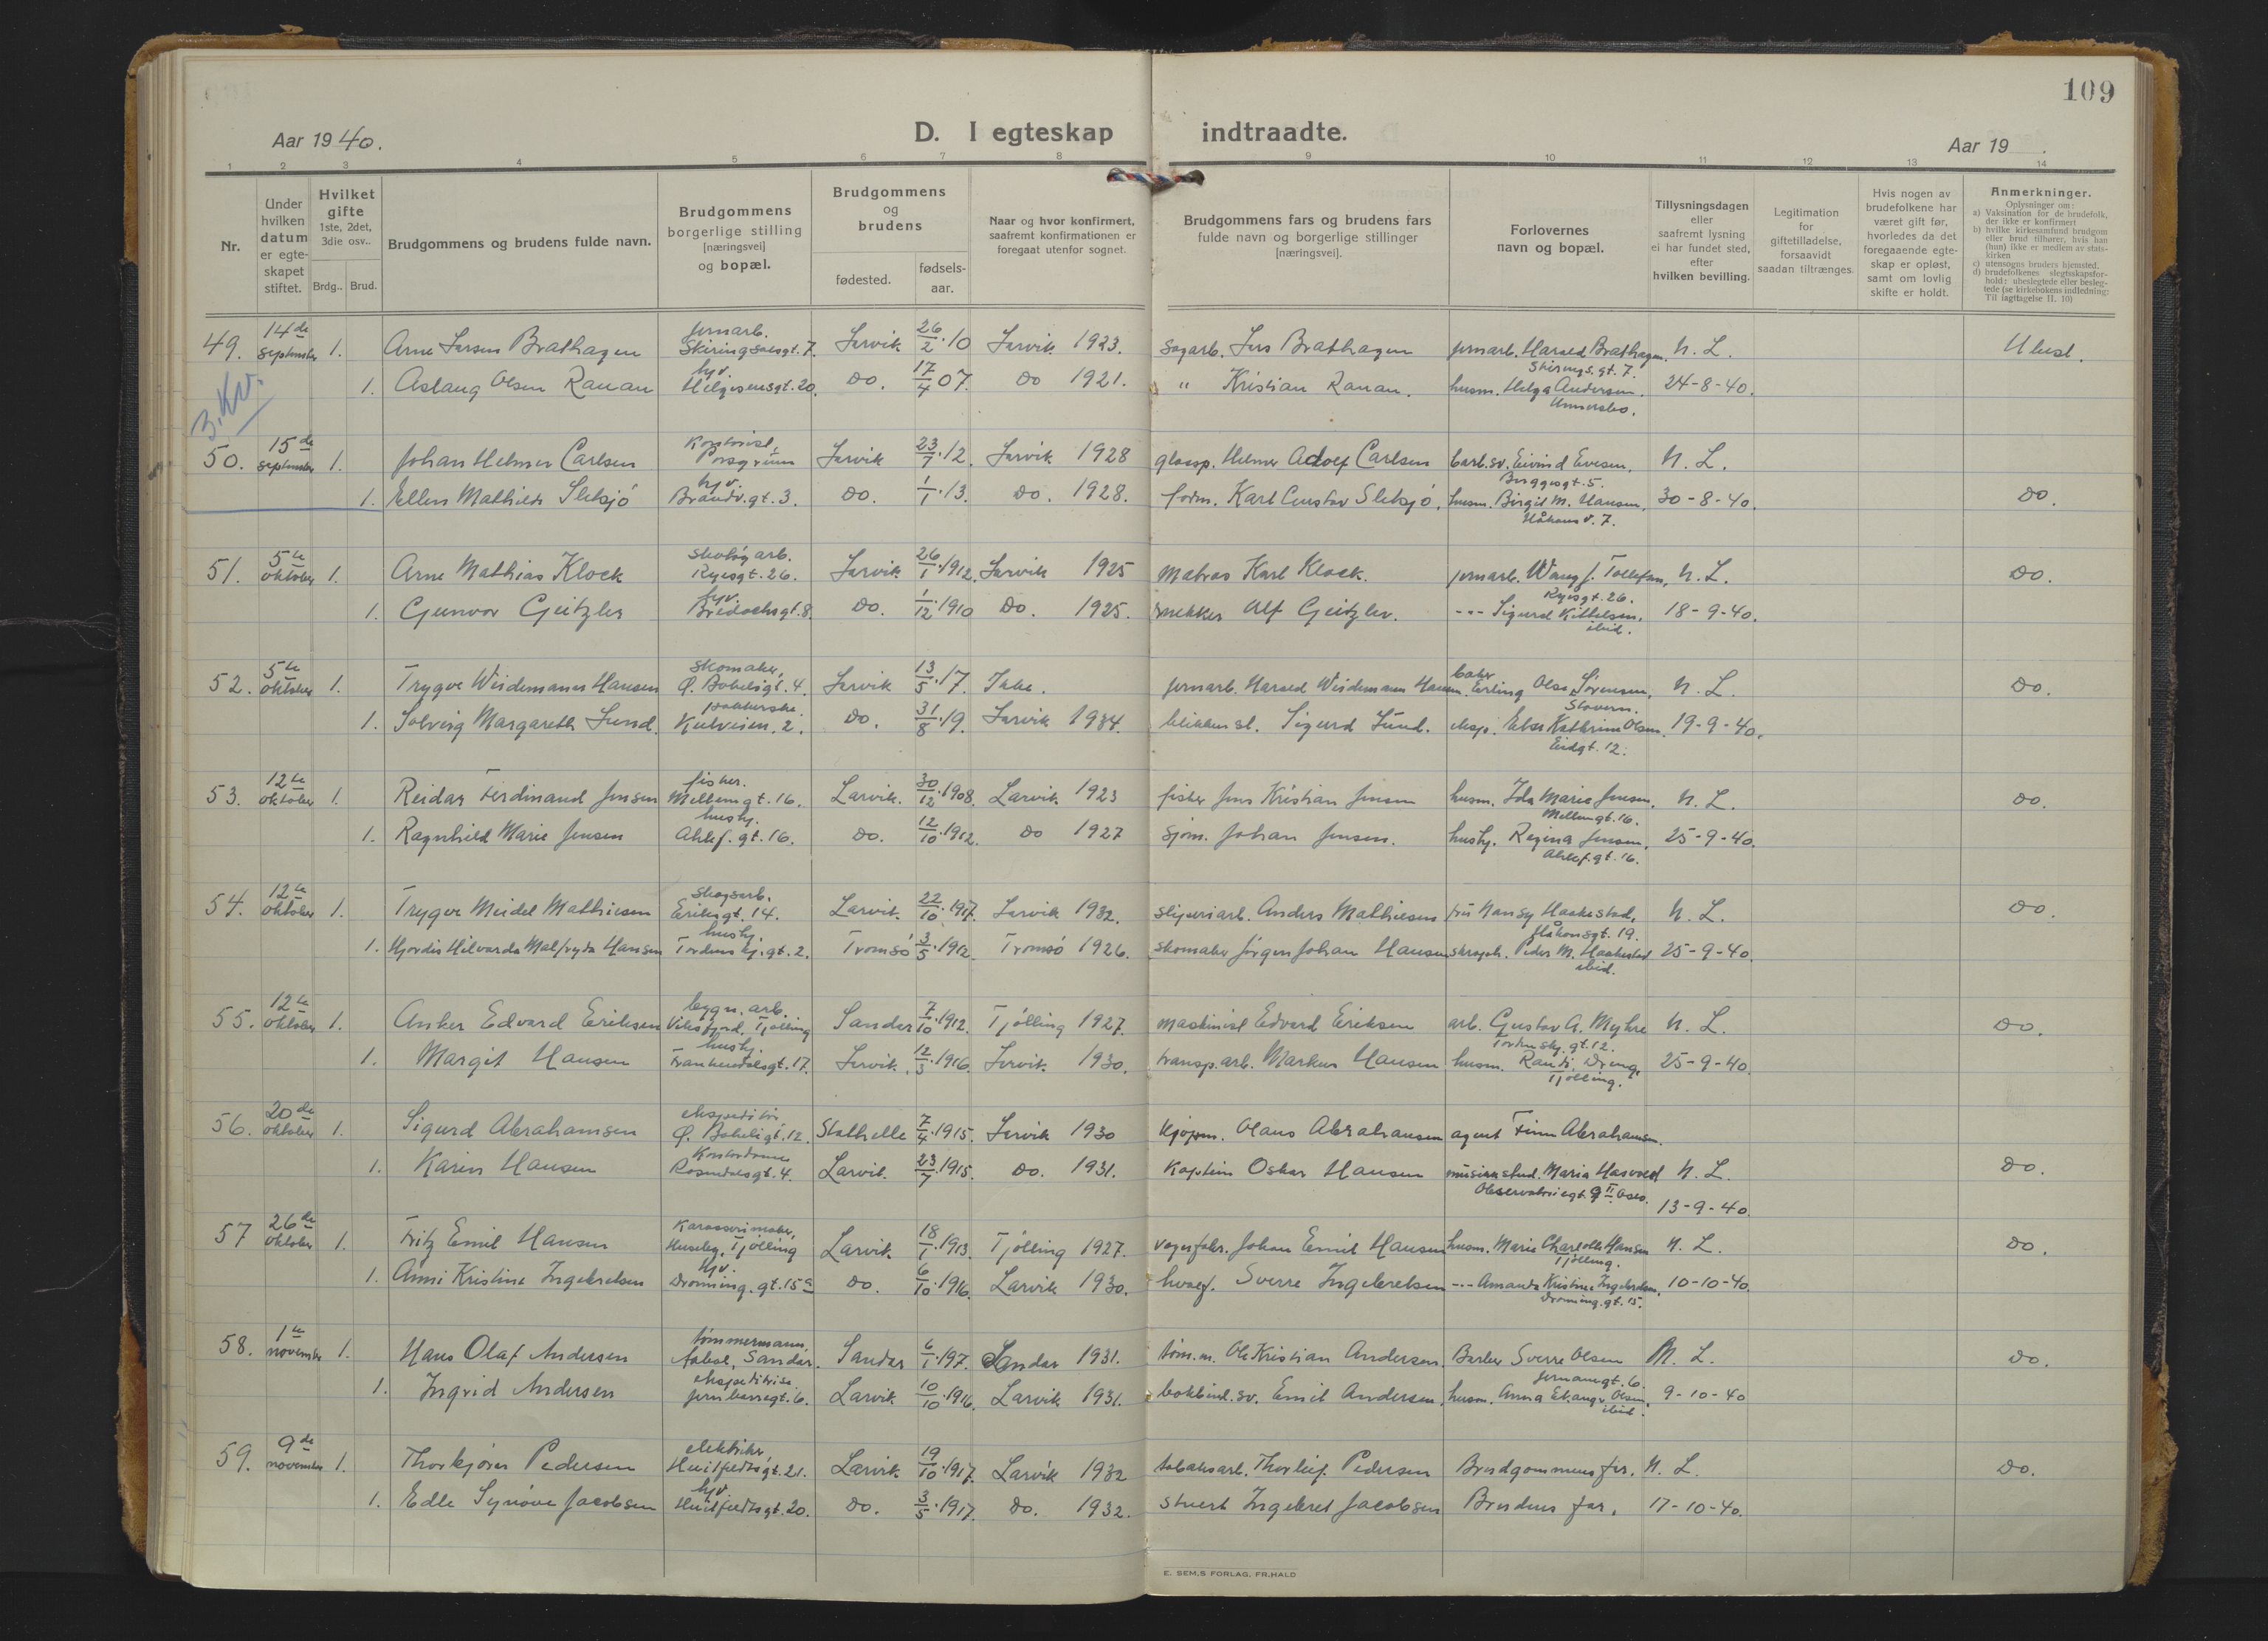 109
Aar 1940.
D. I egteskap indtraadte.
Aar 19 .
1 2 3 4 5 6 7 8 9 10 11 12 13 14
Nr.
Under hvilken datum er egte-skapet stiftet.
Hvilket gifte 1ste, 2det, 3die osv..
Brdg.. Brud.
Brudgommens og brudens fulde navn.
Brudgommens borgerlige stilling [næringsvei] og bopæl.
Brudgommens og brudens
fødested.
fødsels-aar.
Naar og hvor konfirmert, saafremt konfirmationen er foregaat utenfor sognet.
Brudgommens fars og brudens fars fulde navn og borgerlige stillinger [næringsvei].
Forlovernes navn og bopæl.
Tillysningsdagen eller saafremt lysning ei har fundet sted, efter hvilken bevilling.
Legitimation for giftetilladelse, forsaavidt saadan tiltrænges
Hvis nogen av brudefolkene har været gift før, hvorledes da det foregaaende egte-skap er opløst, samt om lovlig skifte er holdt.
Anmerkninger.
Oplysninger om:
a) Vaksination for de brudefolk, der ikke er konfirmert
b) hvilke kirkesamfund brudgom eller brud tilhører, hvis han (hun) ikke er medlem av stats-kirken
c) utensogns bruders hjemsted.
d) brudefolkenes slegtsskapsfor-hold: ubeslegtede eller besleg-tede (se kirkebokens indledning: Til iagttagelse II. 10)
49. 14de september 1. Arne Larsen Brathagen jernarb. Skiringssalsgt. 7. Larvik 26/2.10 Larvik 1923. sagarb. Lars Brathagen jernarb. Harald Brathagen, Skirings.gt. 7. N. L. Ubesl.
1. Aslaug Olsen Ranan hjv. Helgesensgt. 20. do. 17/7 07. do 1921. " Kristian Ranan. husm. Helga Andersen, 24-8-40.
3. kv.
50. 15de september 1. Johan Helmer Carlsen Kontorist, Porsgrunn Larvik 23/7.12. Larvik 1928 glassp. Helmer Adolf Carlsen Eivind Evesen, N. L.
1. Ellen Mathilde Sletsjö hjv. Brandv.gt. 3. do. 1/1.13. do. 1928. form. Karl Gustav Sletsjö. husm. Birgit M. Hansen, Håkons v. 7. 30-8-40. do.
51. 5te oktober 1. Arne Mathias Klock skotöyarb. Ryesgt. 26. Larvik 26/1.1912. Larvik 1925 matros Karl Klock. jernarb. J. Tollefsen, Ryesgt. 26. N. L. do.
1. Gunvor Geitzler hjv. Bredochsgt. 8. do. 1/12 1910 do. 1925. snekker Alf Geitzler. --- Sigurd Kittelsen, ibid. 18-9-40.
52. 5te oktober 1. Trygve Weidemann Hansen skomaker, Ø. Bökeligt. 4. Larvik 13/5.17. Ikke. jernarb. Harald Weidemann Hansen. baker Erling Olse Sørensen, Stavern. N. L. do.
1. Solveig Margareth Lund. pakkerske Kulveien. 2. do. 31/8.19. Larvik 1934. blikkensl. Sigurd Lund. eksp. Kathrine Olsen. Eidgt. 12. 19-9-40.
53. 12te oktober 1. Reidar Ferdinand Jensen fisker. Mellemgt. 16. Larvik. 30/12.1908. Larvik 1923 fisker Jens Kristian Jensen husm. Ida Marie Jensen, Mellemgt. 16. N. L. do.
1. Ragnhild Marie Jensen hushj. Ahlef.gt. 16. do. 12/10 1912. do 1927 sjöm. Johan Jensen. hushj. Regina Jensen, Ahlef.gt. 16. 25-9-40.
54. 12te oktober 1. Trygve Meidel Mathiesen skogsarb. Eriksgt. 14. Larvik. 22/10.1917. Larvik 1932. sliperiarb. Anders Mathiesen fru Nansy Haakestad, Håkonsgt. 19. N. L. do.
1. Hjordis Hilvarda Malfryda Hansen hushj. Tordenskj.gt. 2. Tromsö 3/5.1912. Tromsö 1926. skomaker Jörgen Johan Hansen Peder M. Haakestad ibid. 25-9-40.
55. 12te oktober 1. Anker Edvard Eriksen bygn. arb. Viksfjord, Tjölling Sandar 7/10.1912. Tjölling 1927. maskinist Edvard Eriksen arb. Gustav A. Myhre Tordenskj. gt. 12. N. L. do.
1. Margit Hansen hushj. Frankendalsgt. 17. Larvik. 12/3.1916. Larvik 1930. transp.arb. Markus Hansen husm. Randi Tjölling. 25-9-40.
56. 20de oktober 1. Sigurd Abrahamsen ekspeditör Ø. Bökeligt. 12. Stathelle 7/4.1915. Larvik 1930 kjøpm. Olaus Abrahamsen agent Finn Abrahamsen.
1. Karin Hansen Kontordame Rosendalsgt. 4. Larvik. 23/7.1915. do. 1931. Kaptein Oskar Hansen musikkstud. Maria Hasvold Observatoriegt. 9 II Oslo. N. L. 13-9-40. do.
57 26de oktober 1. Fritz Emil Hansen Karosserimaker, Huseby, Tjölling Larvik 18/1.1913. Tjölling 1927. vognfabr. Johan Emil Hansen husm. Marie Charlotte Hansen Tjölling. N. L. do.
1. Änni Kristine Ingebretsen Hjv. Dronning.gt. 15a do. 6/10.1916. Larvik 1930. hvalf. Sverre Ingebretsen --- Amanda Kristine Ingebretsen, Dronning.gt. 15. 10-10-40.
58. 1te november 1. Hans Olaf Andersen tömmermann, Sandar. Sandar 6/1.197. Sandar 1931. töm.m. Ole Kristian Andersen. Barber Sverre Olsen N. L. do.
1. Ingrid Andersen ekspeditrise Jernbanegt. 6. Larvik 10/10.1916. Larvik 1931. bokbind. sv. Emil Andersen. husm. Anna Olsen, ibid. 9-10-40
59. 9de november 1. Thorbjörn Pedersen elektriker, Huitfeldtsgt. 21. Larvik 19/10.1917. Larvik 1932 tobaksarb. Thorleif Pedersen Brudgommens far. N. L. do.
1. Edle Synöve Jacobsen hjv. Huitfeldtsgt. 20. do. 3/5.1917. do. 1932. stuert Ingebret Jacobsen Brudens far. 17-10-40.
E. SEM.S FORLAG. FR.HALD